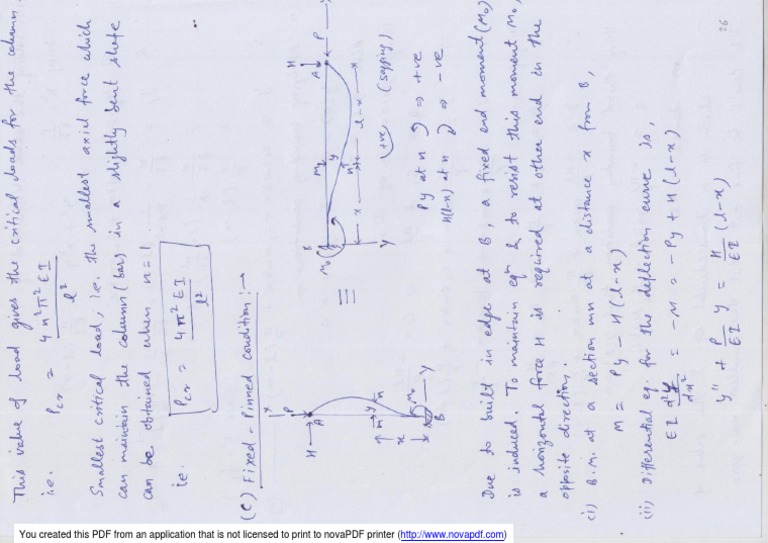 This value of load gives the critical loads for the column.
i.e. Pcr = 4n²π²EI / l²
Smallest critical load, i.e. the smallest axial force which
can maintain the column (bar) in a slightly bent shape
can be obtained when n = 1.
ie. Pcr = 4π²EI / l²
(C) Fixed - Pinned condition :→
x
P
H
A
y
n
n
x
M₀
B
Y
≡
M₀
B
Y
M₀
y
n
x
l-x
x
A
H
P
(+ve) (sagging)
Py at n ⇒ +ve
H(l-x) at n ⇒ -ve
Due to built in edge at B, a fixed end moment (M₀)
is induced. To maintain eqm & to resist this moment M₀,
a horizontal force H is required at other end in the
opposite direction.
(i) B.M. at a section mn at a distance x from B,
M = Py - H(l-x)
(ii) Differential eq. for the deflection curve is,
EI d²y/dx² = -M = -Py + H(l-x)
y'' + P/EI y = H/EI (l-x)
26
You created this PDF from an application that is not licensed to print to novaPDF printer (http://www.novapdf.com)